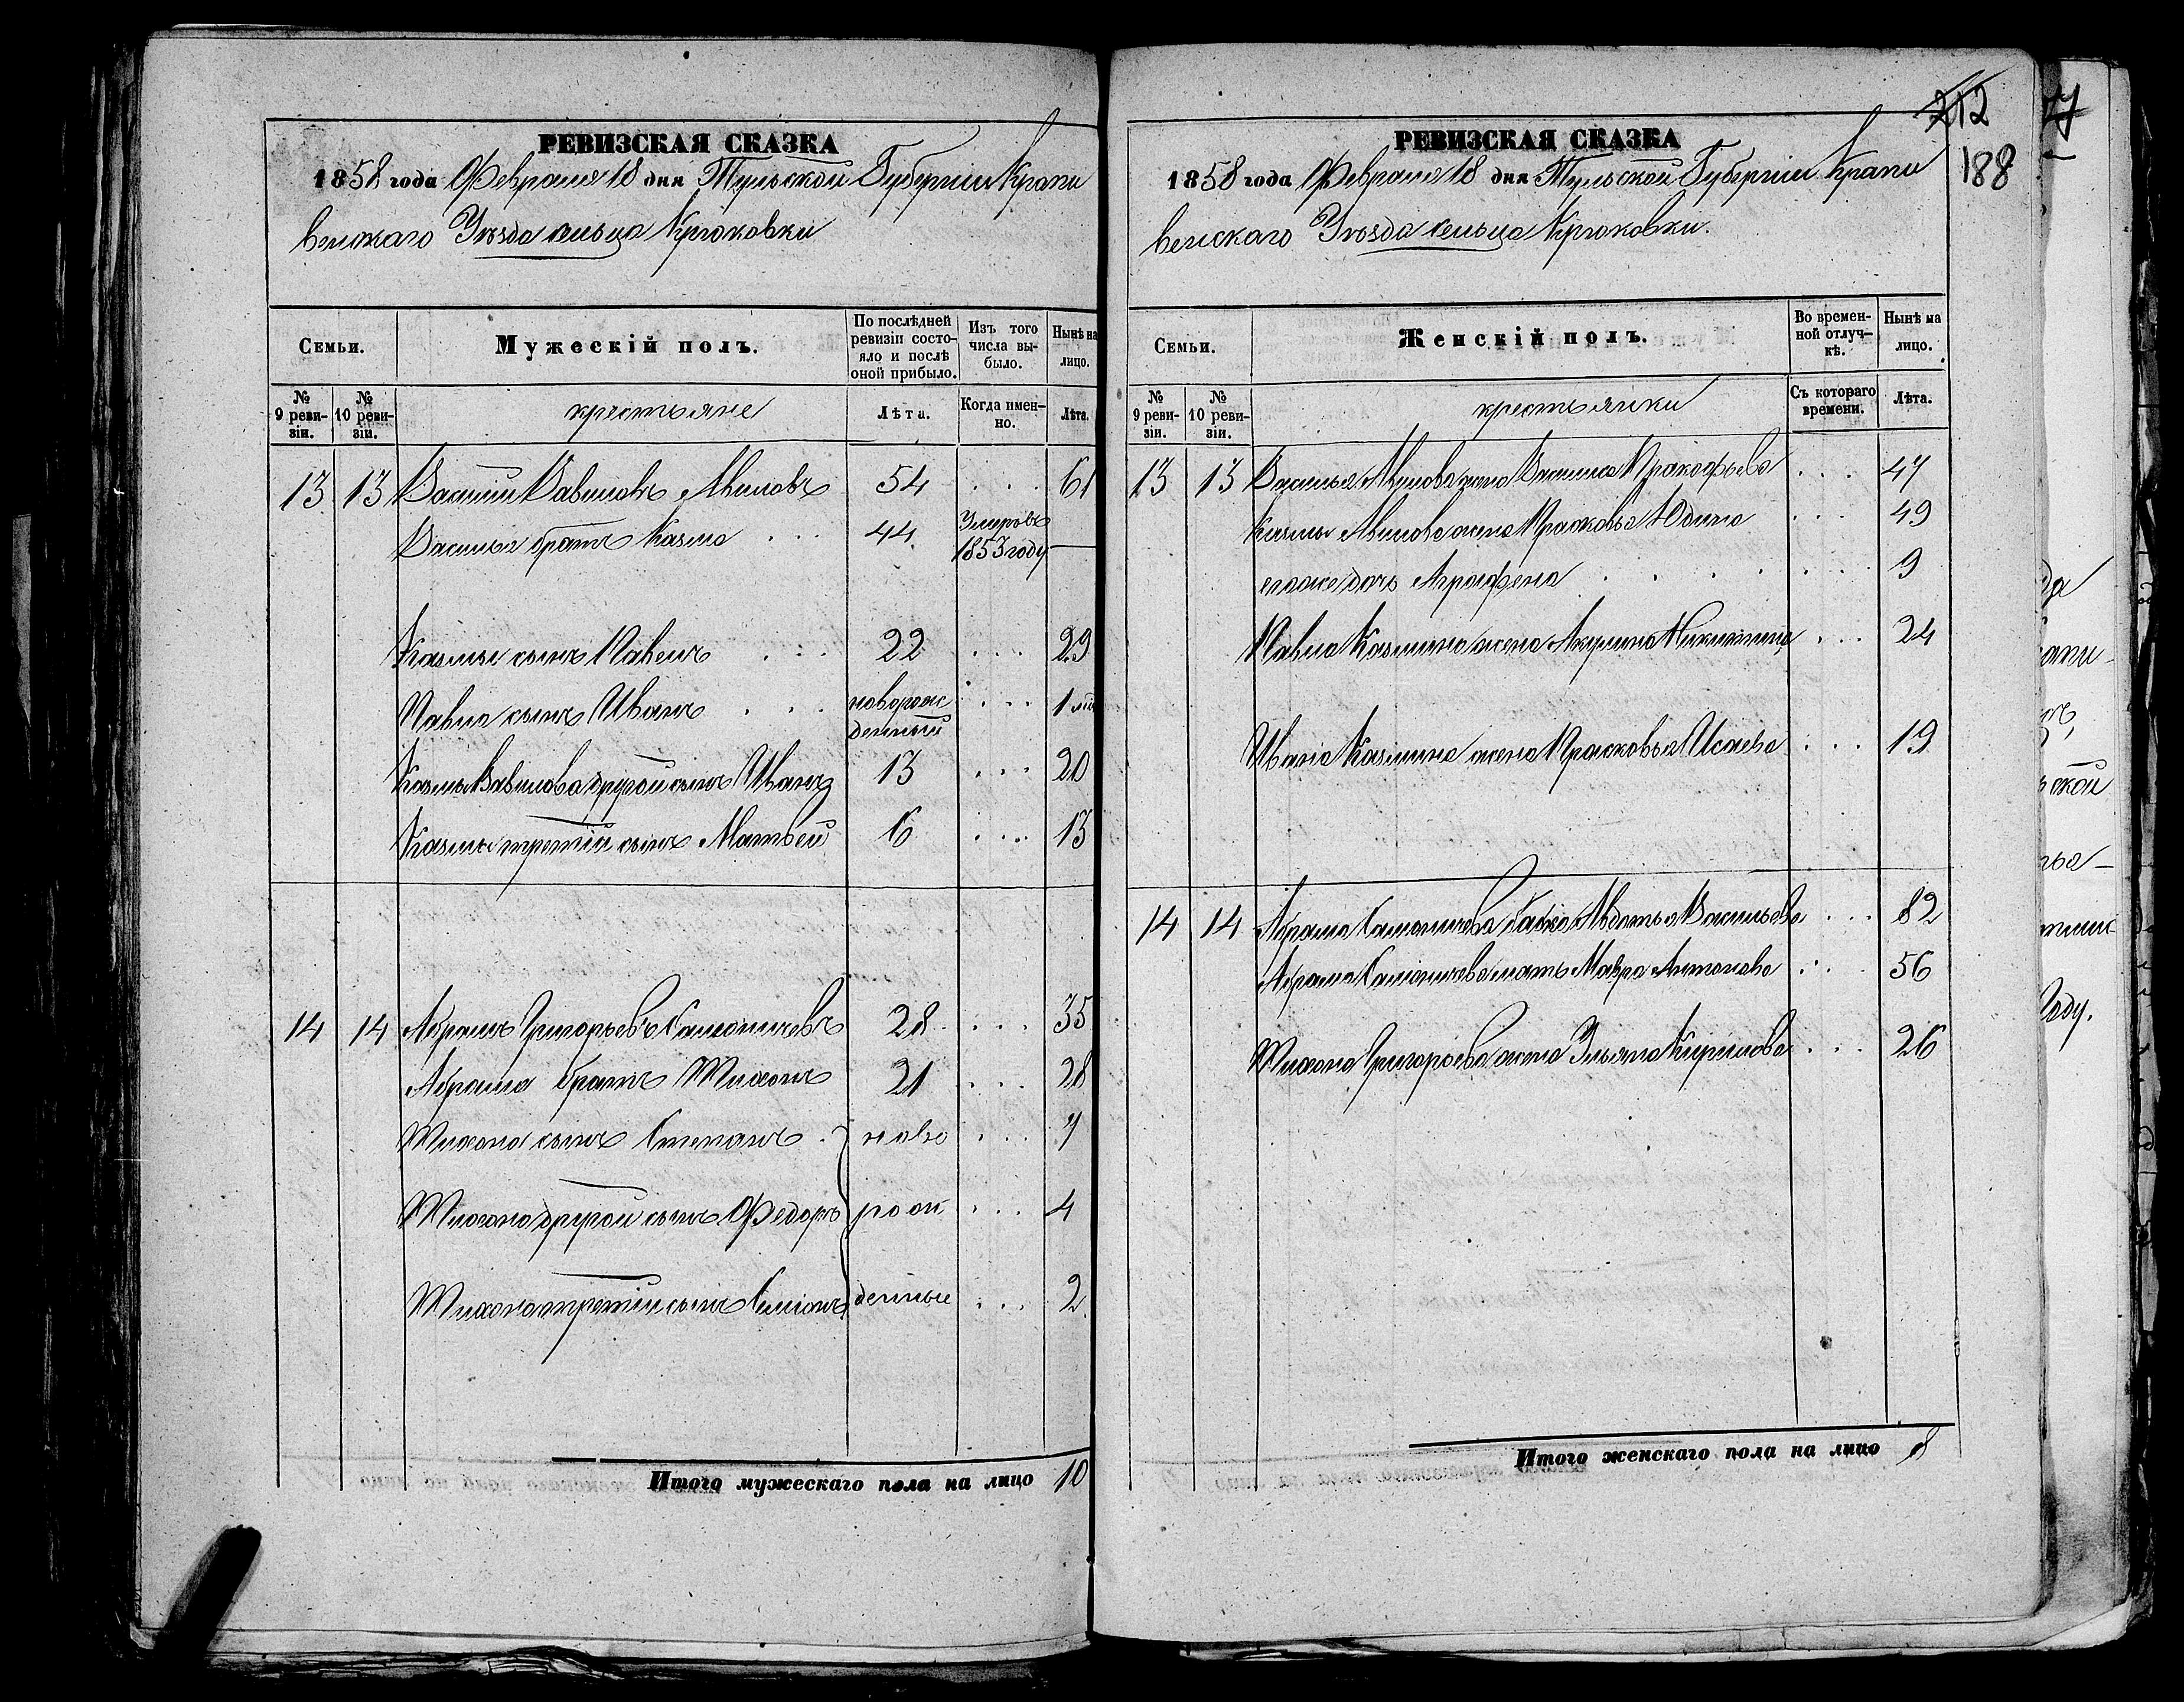 РЕВИЗСКАЯ СКАЗКА
1858 года Февраля 18 дня Тульской Губерніи Крапи
венскаго Уѣзда сельца Крюковки
Семьи.
Мужескій полъ.
По послѣдней ревизіи состояло и послѣ оной прибыло.
Изъ того числа выбыло.
Нынѣ на лицо.
№ 9 ревизіи.
№ 10 ревизіи.
крестьяне
Лѣта.
Когда именно.
Лѣта.
13 13 Василій Вавиловъ Авиловъ 54 . . . 61
Василья братъ Казма . . . 44 Умеръ въ 1853 году —
Казмы сынъ Павелъ . . . 22 . . . 29
Павла сынъ Иванъ . . . новорож
денный . . . 1
Казмы Вавилова другой сынъ Иванъ 13 . . . 20
Казмы третій сынъ Матвей 6 . . . 13
14 14 Абрамъ Григорьевъ 28 . . . 35
Абрама братъ Тихонъ 21 . . . 28
Тихона сынъ Степанъ . ново . . . 7
Тихона другой сынъ Федоръ рож . . . 4
Тихона третій сынъ денные . . . 2
Итого мужескаго пола на лицо 10
212
188
РЕВИЗСКАЯ СКАЗКА
1858 года Февраля 18 дня Тульской Губерніи Крапи
венскаго Уѣзда сельца Крюковки.
Семьи.
Женскій полъ.
Во временной отлучкѣ.
Нынѣ на лицо.
№ 9 ревизіи.
№ 10 ревизіи.
крестьянки
Съ котораго времени.
Лѣта.
13 13 Василья Авилова жена Василиса Пракофьева . . . 47
Казмы Авилова жена Прасковья Юдина . . . 49
егоже дочь Аграфена . . . 9
Павла Казмина жена Акулина Никитина . . . 24
Ивана Казмина жена Прасковья Исаева . . . 19
14 14 Абрама бабка Авдотья Васильева . . . 82
Абрама мать Мавра Антонова . . . 56
Тихона Григорьева жена Ульяна Кирилова . . . 26
Итого женскаго пола на лицо 8